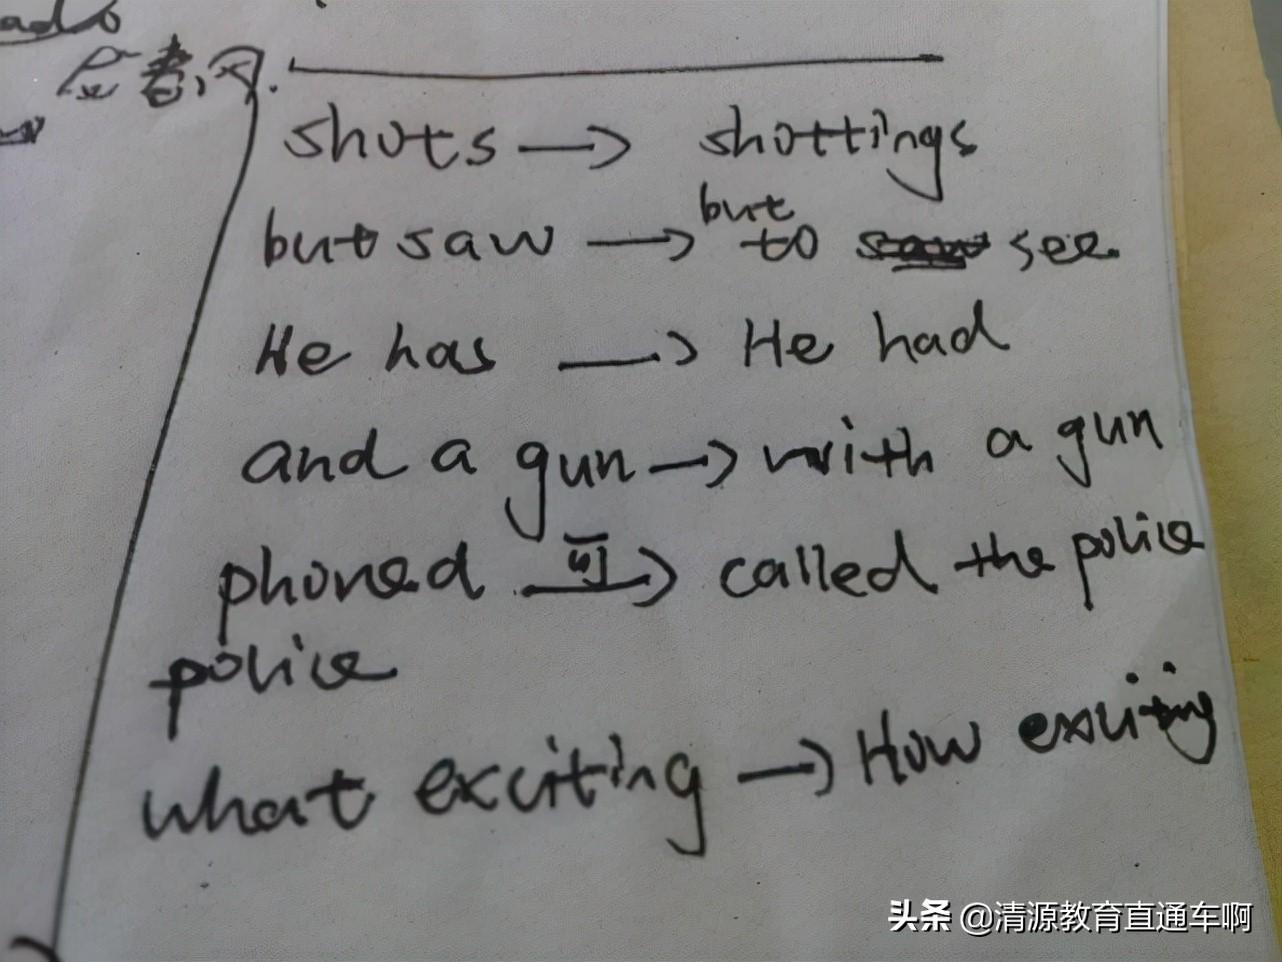 shots → shottings
but saw → but to see
He has → He had
and a gun → with a gun
phoned 可→ called the police
police
what exciting → How exciting
头条 @清源教育直通车啊